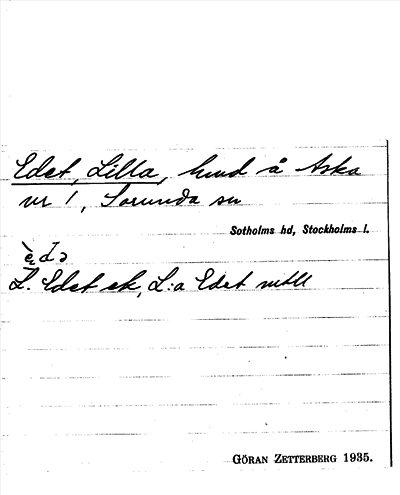 Edet, Lilla, hmd å Aska
nr 1, Sorunda sn
Sotholms hd, Stockholms l.
L. Edet ek, L:a Edet mtll
GÖRAN ZETTERBERG 1935.